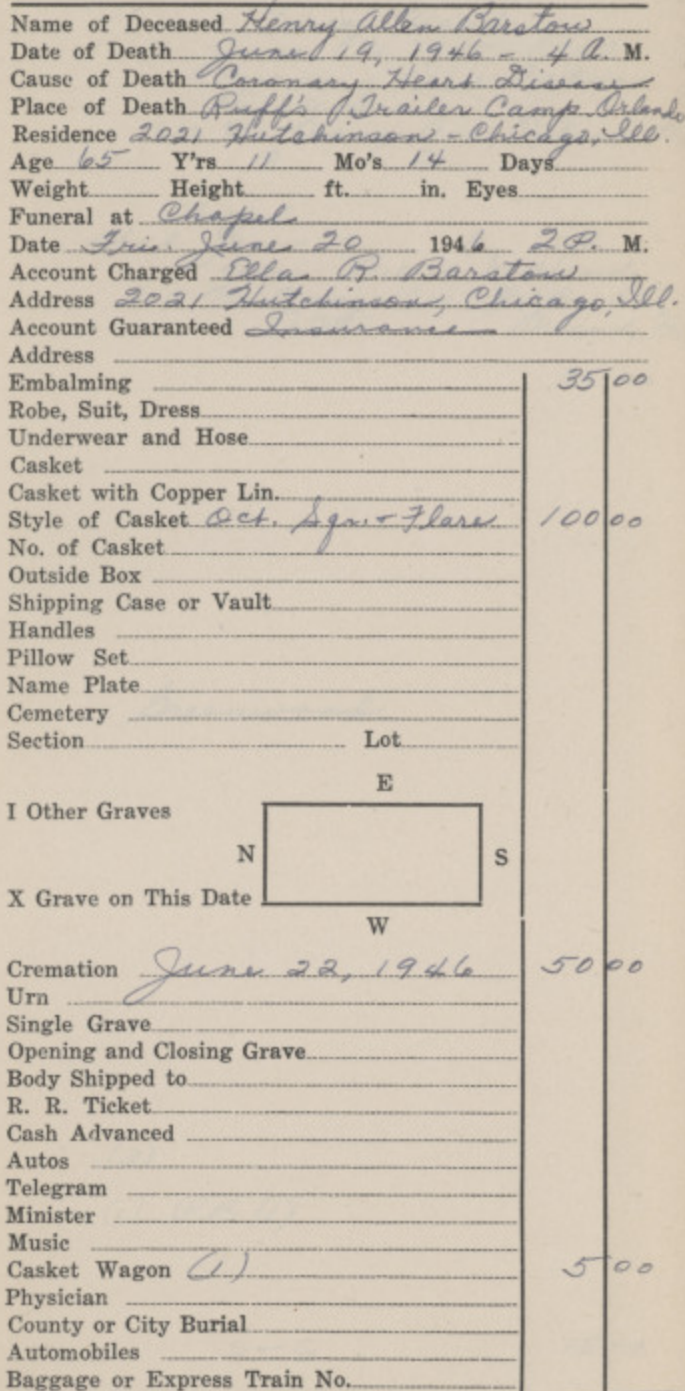 Name of Deceased Henry Allen Barstow
Date of Death June 19, 1946 - 4 A. M.
Cause of Death Coronary Heart Disease
Place of Death Ruff's Trailer Camp Orlando
Residence 2021 Hutchinson - Chicago, Ill.
Age 65 Y'rs 11 Mo's 14 Days
Weight Height ft. in. Eyes
Funeral at Chapel
Date Fri. June 20 1946 2 P. M.
Account Charged Ella R. Barstow
Address 2021 Hutchinson, Chicago, Ill.
Account Guaranteed Insurance
Address
Embalming 35 00
Robe, Suit, Dress
Underwear and Hose
Casket
Casket with Copper Lin.
Style of Casket Oct. Sqr. + Flare 100 00
No. of Casket
Outside Box
Shipping Case or Vault
Handles
Pillow Set
Name Plate
Cemetery
Section Lot
E
I Other Graves
N S
X Grave on This Date
W
Cremation June 22, 1946 50 00
Urn
Single Grave
Opening and Closing Grave
Body Shipped to
R. R. Ticket
Cash Advanced
Autos
Telegram
Minister
Music
Casket Wagon (1) 5 00
Physician
County or City Burial
Automobiles
Baggage or Express Train No.